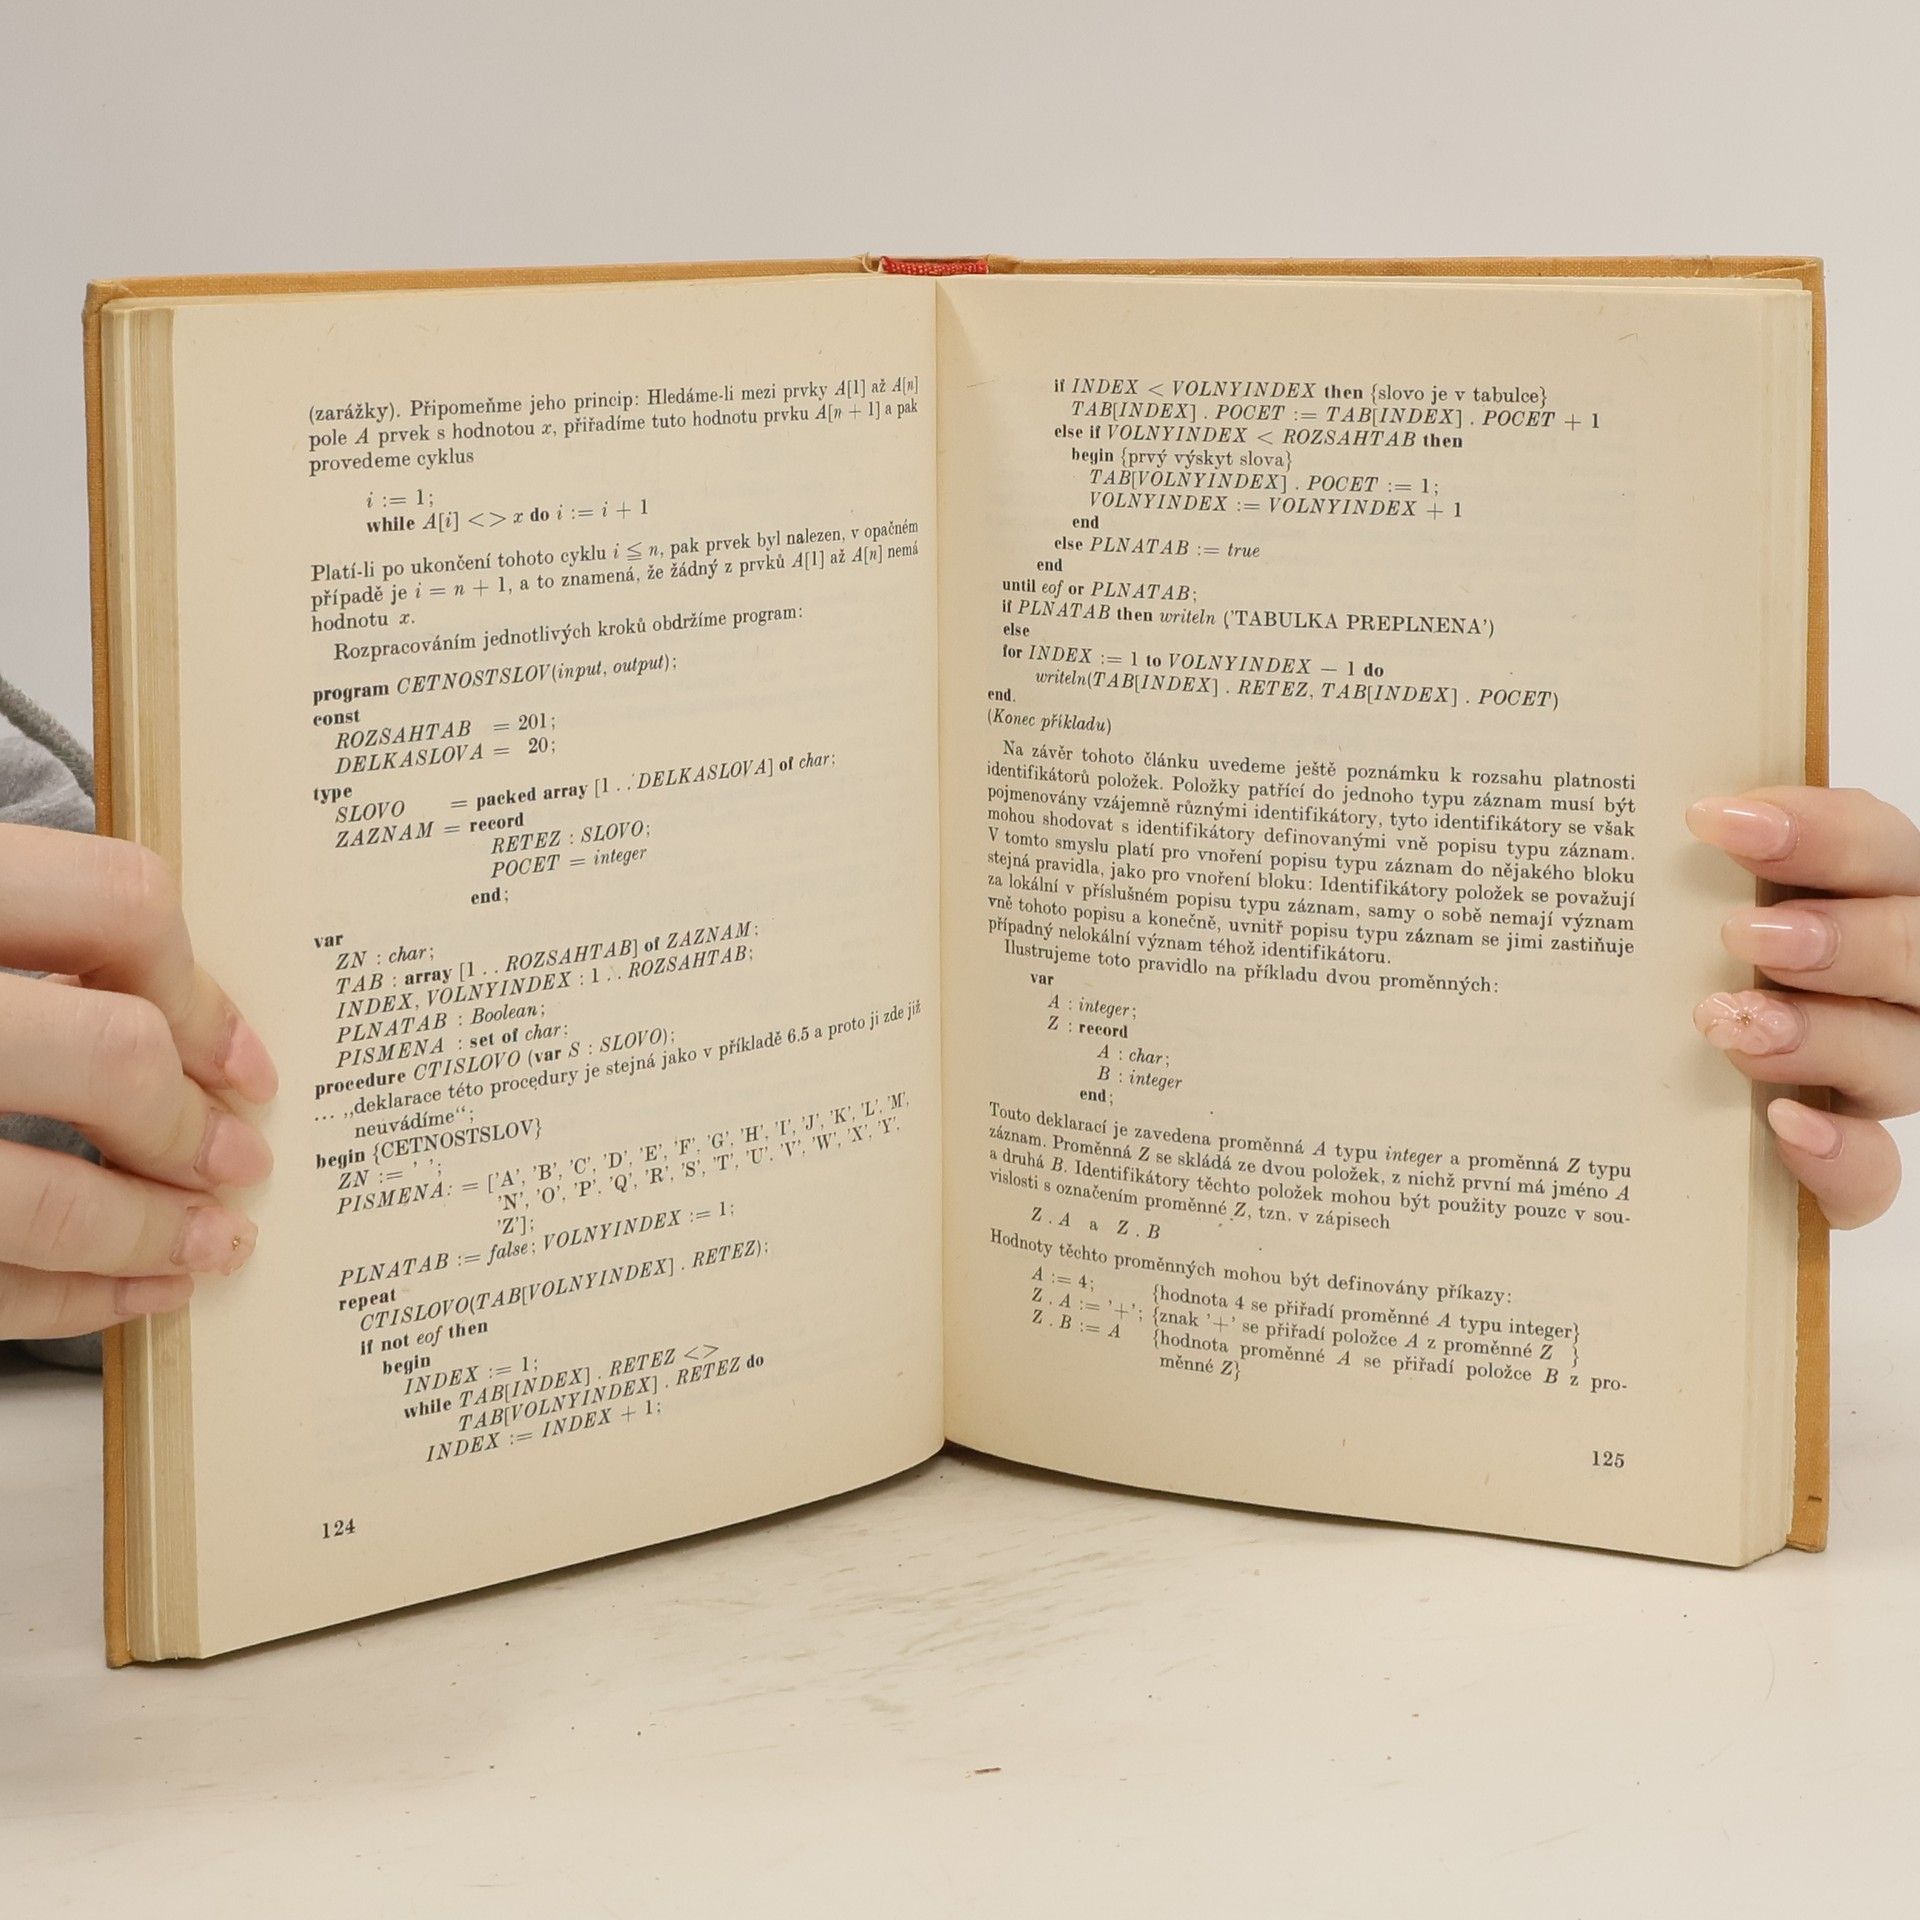 (zarážky). Připomeňme jeho princip: Hledáme-li mezi prvky A[1] až A[n]
pole A prvek s hodnotou x, přiřadíme tuto hodnotu prvku A[n + 1] a pak
provedeme cyklus
i := 1;
while A[i] <> x do i := i + 1
Platí-li po ukončení tohoto cyklu i ≦ n, pak prvek byl nalezen, v opačném
případě je i = n + 1, a to znamená, že žádný z prvků A[1] až A[n] nemá
hodnotu x.
Rozpracováním jednotlivých kroků obdržíme program:
program CETNOSTSLOV(input, output);
const
ROZSAHTAB = 201;
DELKASLOVA = 20;
type
SLOVO = packed array [1 . . DELKASLOVA] of char;
ZAZNAM = record
RETEZ : SLOVO;
POCET = integer
end;
var
ZN : char;
TAB : array [1 . . ROZSAHTAB] of ZAZNAM;
INDEX, VOLNYINDEX : 1 . . ROZSAHTAB;
PLNATAB : Boolean;
PISMENA : set of char:
procedure CTISLOVO (var S : SLOVO);
... „deklarace této procedury je stejná jako v příkladě 6.5 a proto ji zde již
neuvádíme“;
begin {CETNOSTSLOV}
ZN := ' ';
PISMENA: = ['A', 'B', 'C', 'D', 'E', 'F', 'G', 'H', 'I', 'J', 'K', 'L', 'M',
'N', 'O', 'P', 'Q', 'R', 'S', 'T', 'U', 'V', 'W', 'X', 'Y',
'Z'];
PLNATAB := false; VOLNYINDEX := 1;
repeat
CTISLOVO(TAB[VOLNYINDEX] . RETEZ);
if not eof then
begin
INDEX := 1;
while TAB[INDEX] . RETEZ <>
TAB[VOLNYINDEX] . RETEZ do
INDEX := INDEX + 1;
124
if INDEX < VOLNYINDEX then {slovo je v tabulce}
TAB[INDEX] . POCET := TAB[INDEX] . POCET + 1
else if VOLNYINDEX < ROZSAHTAB then
begin {prvý výskyt slova}
TAB[VOLNYINDEX] . POCET := 1;
VOLNYINDEX := VOLNYINDEX + 1
end
else PLNATAB := true
end
until eof or PLNATAB;
if PLNATAB then writeln ('TABULKA PREPLNENA')
else
for INDEX := 1 to VOLNYINDEX − 1 do
writeln(TAB[INDEX] . RETEZ, TAB[INDEX] . POCET)
end.
(Konec příkladu)
Na závěr tohoto článku uvedeme ještě poznámku k rozsahu platnosti
identifikátorů položek. Položky patřící do jednoho typu záznam musí být
pojmenovány vzájemně různými identifikátory, tyto identifikátory se však
mohou shodovat s identifikátory definovanými vně popisu typu záznam.
V tomto smyslu platí pro vnoření popisu typu záznam do nějakého bloku
stejná pravidla, jako pro vnoření bloku: Identifikátory položek se považují
za lokální v příslušném popisu typu záznam, samy o sobě nemají význam
vně tohoto popisu a konečně, uvnitř popisu typu záznam se jimi zastiňuje
případný nelokální význam téhož identifikátoru.
Ilustrujeme toto pravidlo na příkladu dvou proměnných:
var
A : integer;
Z : record
A : char;
B : integer
end;
Touto deklarací je zavedena proměnná A typu integer a proměnná Z typu
záznam. Proměnná Z se skládá ze dvou položek, z nichž první má jméno A
a druhá B. Identifikátory těchto položek mohou být použity pouze v sou-
vislosti s označením proměnné Z, tzn. v zápisech
Z . A a Z . B
Hodnoty těchto proměnných mohou být definovány příkazy:
A := 4; {hodnota 4 se přiřadí proměnné A typu integer}
Z . A := '+'; {znak '+' se přiřadí položce A z proměnné Z }
Z . B := A {hodnota proměnné A se přiřadí položce B z pro-
měnné Z}
125